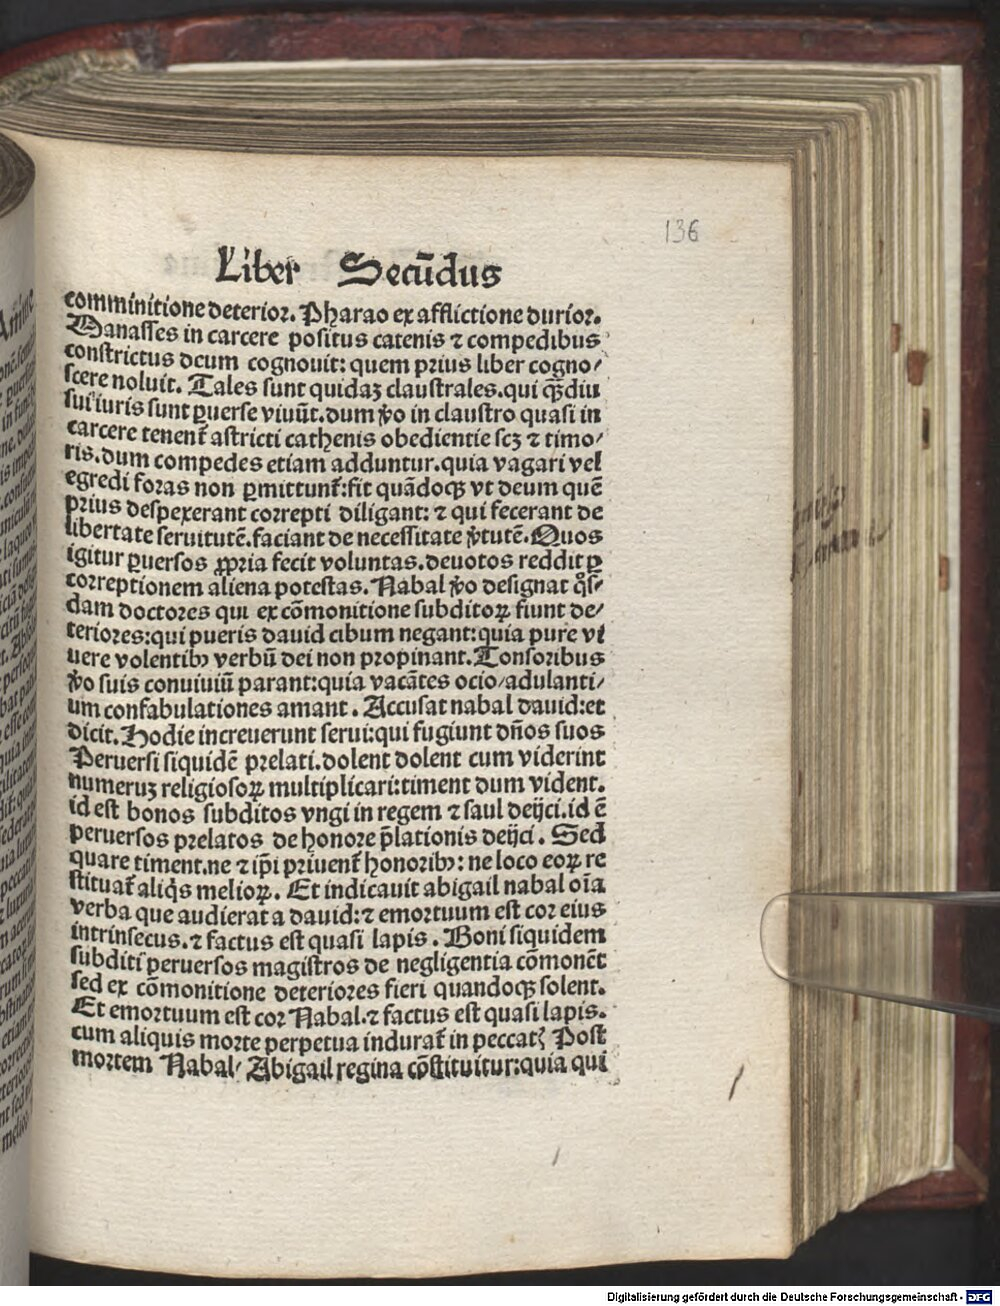 136
Liber Secūdus
comminitione deterior. Pharao ex afflictione durior.
Manasses in carcere positus catenis ⁊ compedibus
constrictus deum cognouit: quem prius liber cogno/
scere noluit. Tales sunt quidaꝫ claustrales. qui qͣ̄diu
sui iuris sunt ꝑuerse viuūt. dum ꝟo in claustro quasi in
carcere tenent̄ astricti cathenis obedientie scꝫ ⁊ timo/
ris. dum compedes etiam adduntur. quia vagari vel
egredi foras non ꝑmittunt̄: fit quādoqꝫ vt deum quē
prius despexerant correpti diligant: ⁊ qui fecerant de
libertate seruitutē. faciant de necessitate ꝟtutē. Quos
igitur ꝑuersos ꝓpria fecit voluntas. deuotos reddit ꝑ
correptionem aliena potestas. Nabal ꝟo designat qͦs/
dam doctores qui ex cōmonitione subditoꝝ fiunt de/
teriores: qui pueris dauid cibum negant: quia pure vi
uere volentibꝰ verbū dei non propinant. Tonsoribus
ꝟo suis conuiuiū parant: quia vacātes ocio/ adulanti/
um confabulationes amant. Accusat nabal dauid: et
dicit. Hodie increuerunt serui: qui fugiunt dn̄os suos
Peruersi siquidē prelati. dolent dolent cum viderint
numeruꝫ religiosoꝝ multiplicari: timent dum vident.
id est bonos subditos vngi in regem ⁊ saul deijci. id ē
peruersos prelatos de honore p̄lationis deijci. Sed
quare timent. ne ⁊ ip̄i priuent̄ honoribꝰ: ne loco eoꝝ re
stituat̄ aliqͥs melioꝝ. Et indicauit abigail nabal oīa
verba que audierat a dauid: ⁊ emortuum est cor eius
intrinsecus. ⁊ factus est quasi lapis. Boni siquidem
subditi peruersos magistros de negligentia cōmonēt
sed ex cōmonitione deteriores fieri quandoqꝫ solent.
Et emortuum est cor Nabal. ⁊ factus est quasi lapis.
cum aliquis morte perpetua indurat̄ in peccatꝭ Post
mortem Nabal/ Abigail regina cōstituitur: quia qui
Digitalisierung gefördert durch die Deutsche Forschungsgemeinschaft - DFG